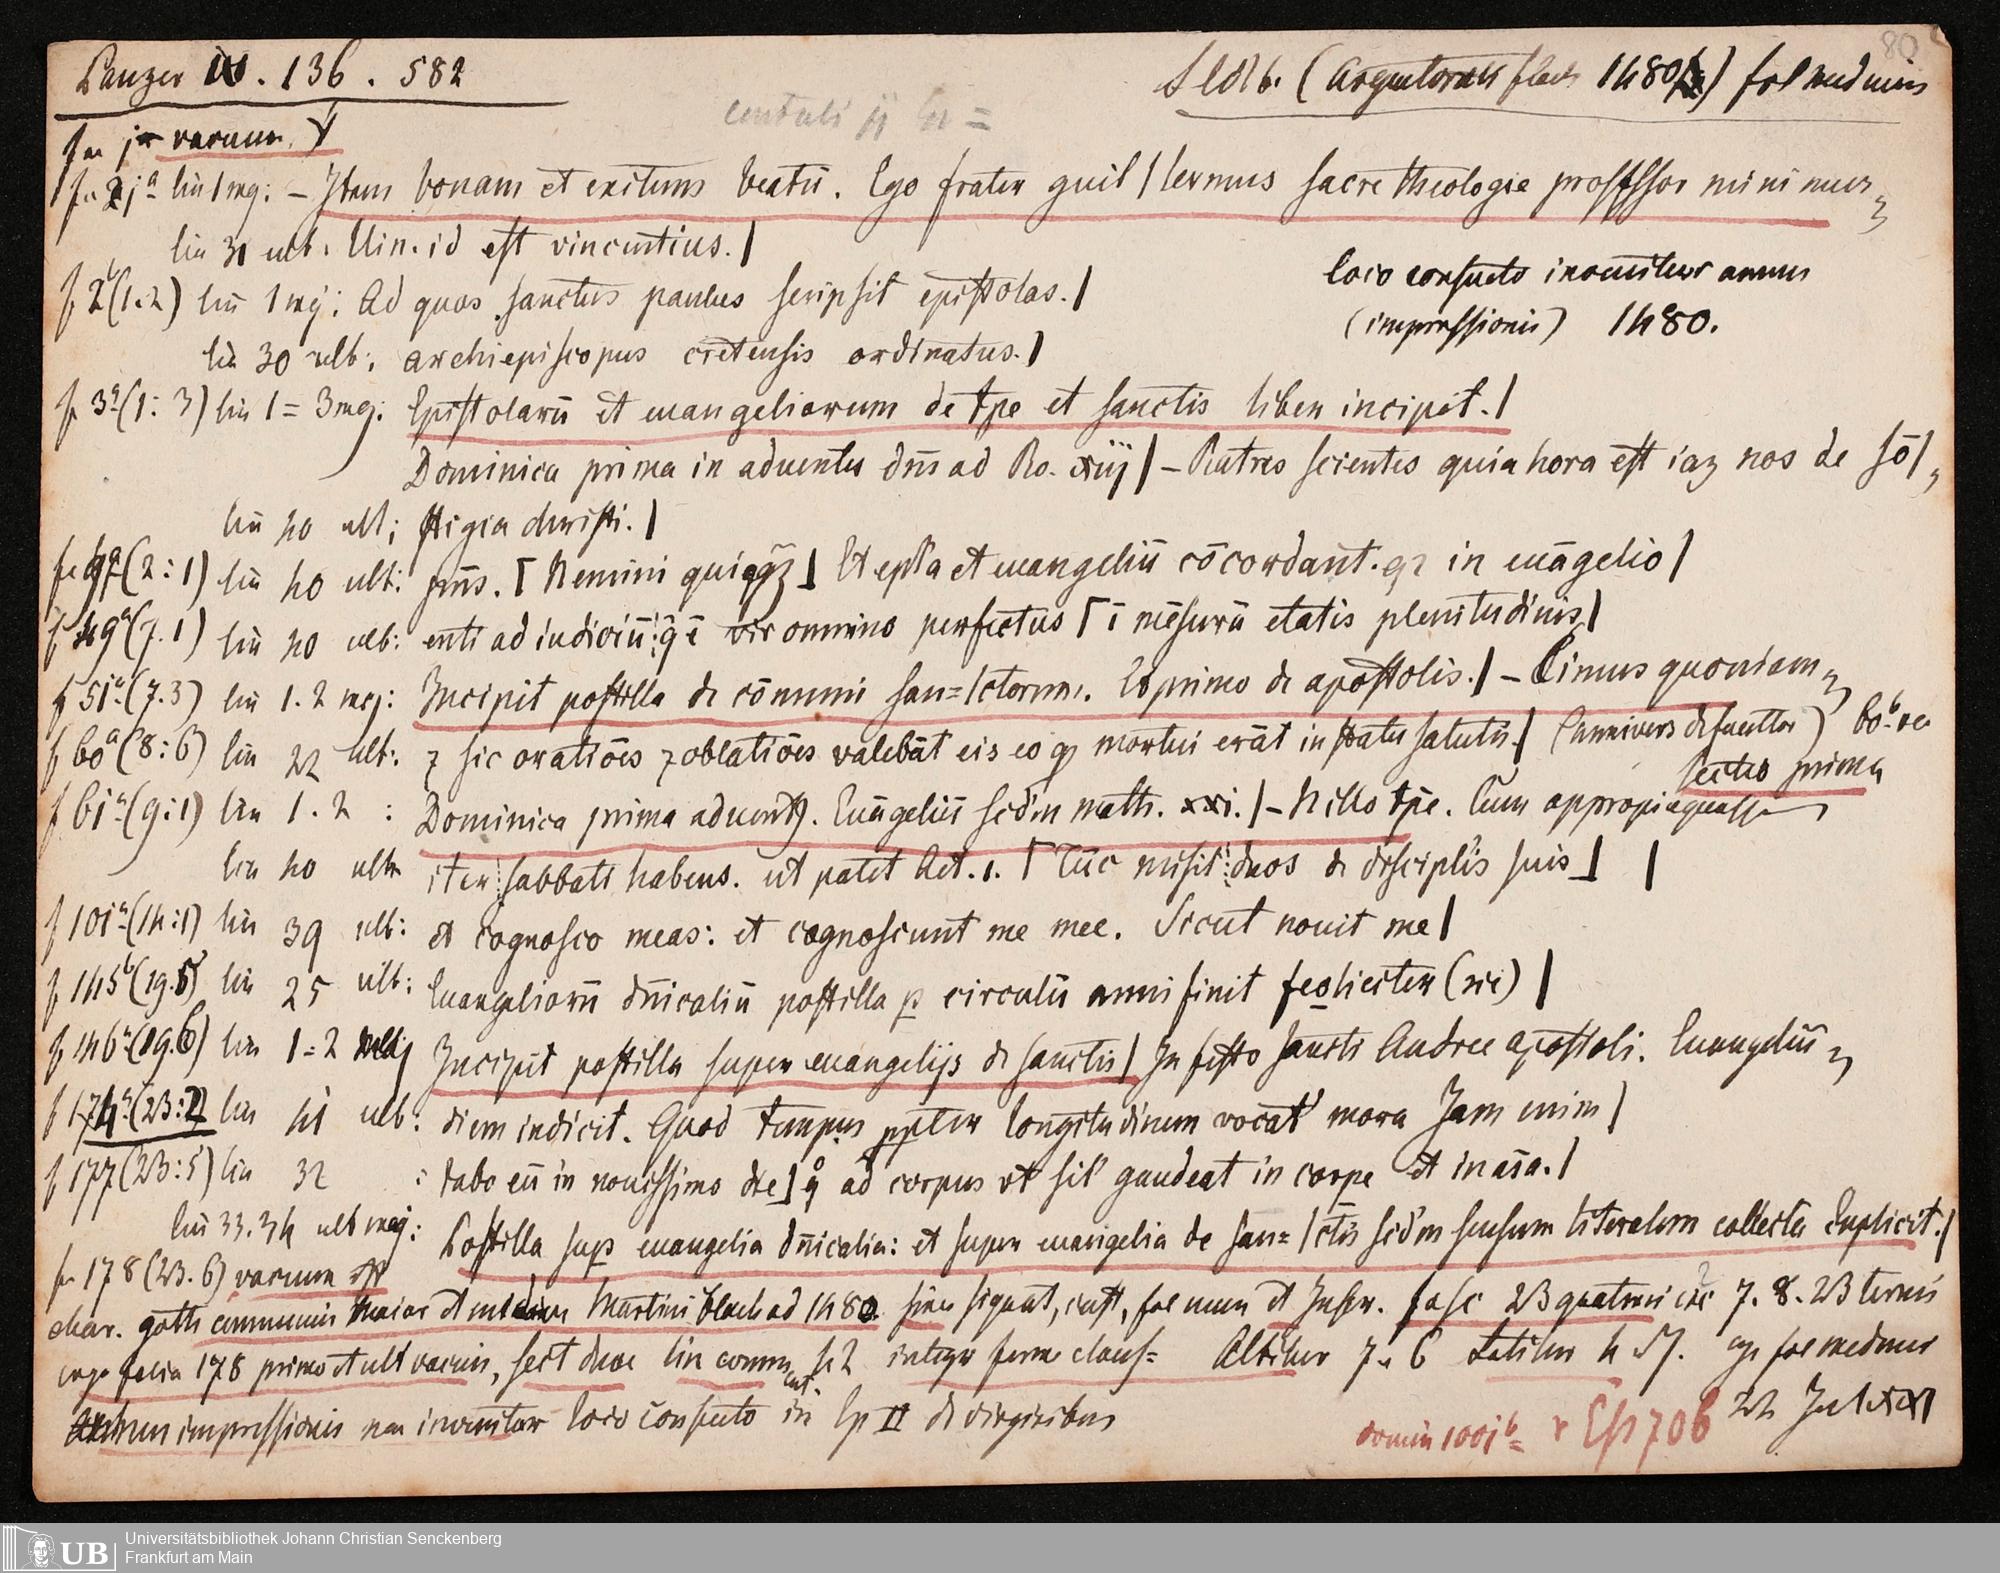 Panzer IV. 136. 582
s l d t b. (Argentorati Flach 1480) fol med min
80
contuli ij Ex =
fo ja vacuum.
fo 2ja lin 1 mg: – Item bonam et exitum beatū. Ego frater guil | lermus sacre theologie professor minimus
lin 31 ult. Uin. id est vincentius. |
f 2b (1.2) lin 1 mg: Ad quos sanctus paulus scripsit epistolas. |
loco consueto invenitur annus
(impressionis) 1480.
lin 30 ult: archiepiscopus cretensis ordinatus. |
f 3a (1:3) lin 1=3 mg: Epistolarū et euangeliorum de tpe et sanctis liber incipit. |
Dominica prima in aduentu dn̄i ad Ro. xiij | – Ratres scientes quia hora est iaz nos de sō |
lin 40 ult; stigia christi. |
(2:1) lin 40 ult: pn̄s. [ Nemini quicqz ] Et epl'a et euangeliū cōcordant. qz in euāgelio |
f 49a (7.1) lin 40 ult: enti ad iudiciū: q̄ ē vir omnino perfectus [ ī mēsurā etatis plenitudinis |
f 51a (7.3) lin 1.2 mg: Incipit postilla de cōmuni san= | ctorum. Et primo de apostolis. | – Cimus quoniam
f 60a (8:6) lin 22 ult: z sic oratiōes z oblatiōes valebāt eis eo qp mortui erāt in statu salutis. | (annivers defunctor) 60b va
sectio prima
f 61a (9:1) lin 1.2 : Dominica prima aduentꝰ. Euāgeliū scdm math. xxi. | – N illo tpe. Cum appropinquasset
lin 40 ult iter sabbati habens. ut patet Act. 1. [ Tūc misit duos de discipl'is suis ] |
f 101a (14:1) lin 39 ult: et cognosco meas: et cognoscunt me mee. Sicut nouit me |
f 145b (19.5) lin 25 ult: Euangeliorū dn̄icaliū postilla p circulū anni finit feoliciter (sic) |
f 146a (19.6) lin 1=2 mg Incipit postilla super euangelijs de sanctis | In festo sancti Andree apostoli. Euangeliū
f 174a (23:2) lin 41 ult: diem indicit. Quod tempus ppter longitudinem vocat' mora Jam enim |
f 177 (23:5) lin 32 : tabo eū in nouissimo die ] q̊ ad corpus vt sil' gaudeat in corpe et in aīa. |
lin 33.34 ult maj: Postilla sup euangelia dn̄icalia: et super euangelia de san= | ctis scd'm sensum literalem collecta Explicit. |
fo 178 (23.6) vacuum est
char. goth communis maior et minor Martini Flach ad 1480. sine signat, cust, fol num et Inscr. fasc 23 quaterni exc 7. 8. 23 terni
ergo folia 178 primo et ult vacuis, sect duae lin comm 42 integr ferme claus= Altitur 7 u 6 Latitur 4 u 5/. cp fol med min
Annum impressionis non invenitur loco consueto in Ep II de virginibus
domin 1001b = r Esp 706 22 Jul XXI
Universitätsbibliothek Johann Christian Senckenberg
UB
Frankfurt am Main